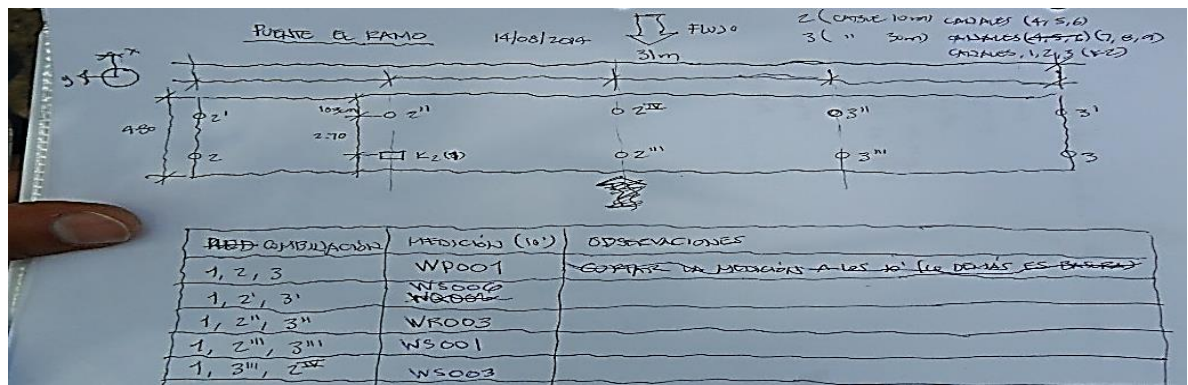 PUENTE EL RAMO 14/08/2014 FLUJO 2 (CABLE 10m) CANALES (4, 5, 6)
3 ( " 30m) CANALES (4, 5, 6) (7, 8, 9)
CANALES, 1, 2, 3 (K2)
31m
x
y
4.80
2'
103cm
2''
2IV
3''
3'
2.70
2
K2(1)
2'''
3'''
3
COMBINACIÓN MEDICIÓN (10') OBSERVACIONES
1, 2, 3 WP001 CORTAR LA MEDICIÓN A LOS 10' (LO DEMÁS ES BASURA)
1, 2', 3' WS006
1, 2'', 3'' WR003
1, 2''', 3''' WS001
1, 3''', 2IV WS003